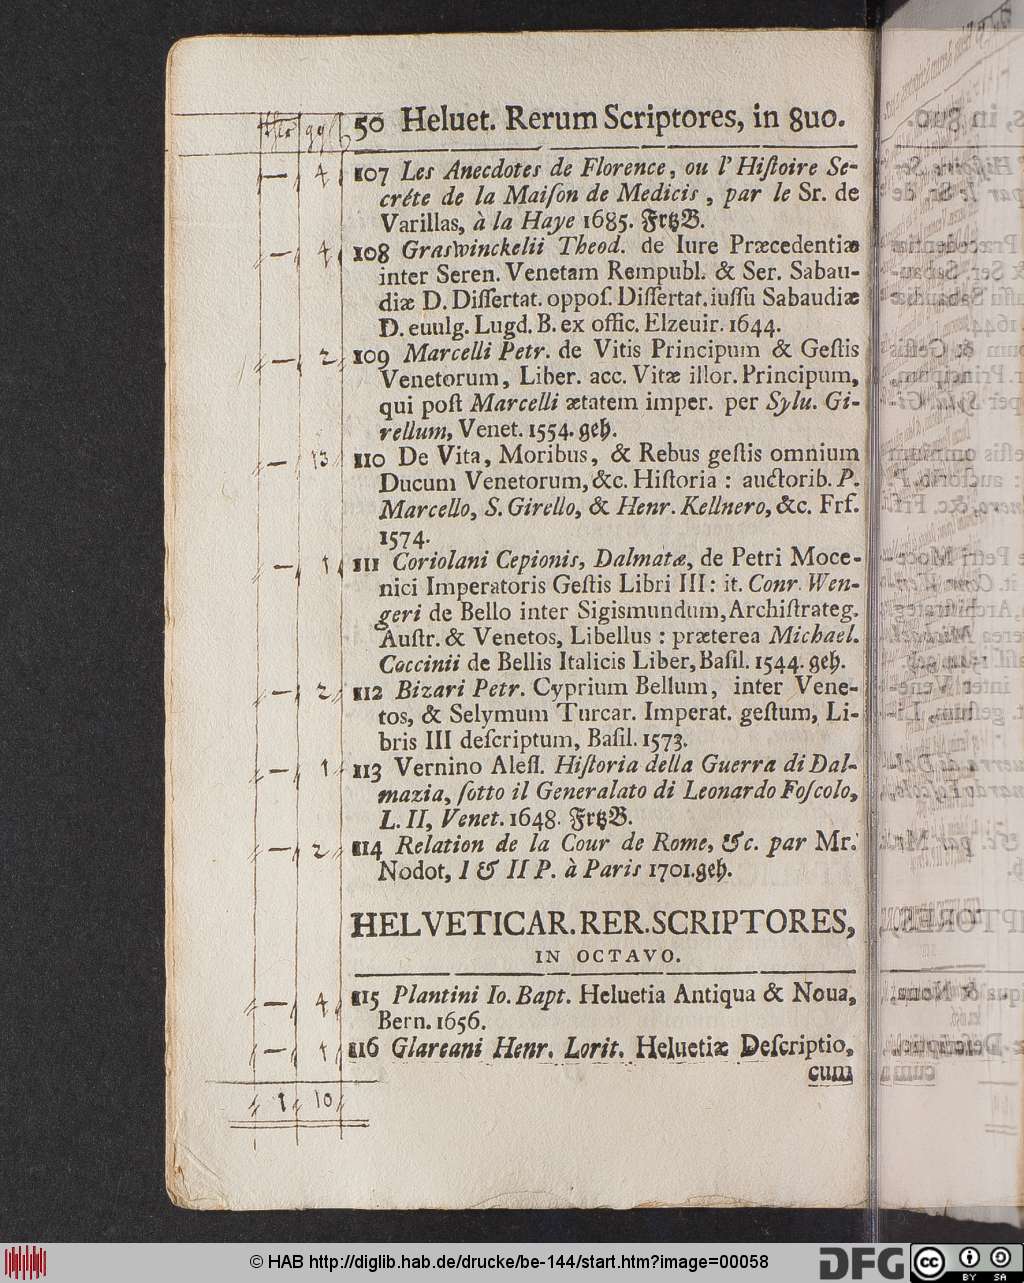 thlr gg
50 Heluet. Rerum Scriptores, in 8uo.
— 4 107 Les Anecdotes de Florence, ou l'Hiſtoire Se-
créte de la Maiſon de Medicis, par le Sr. de
Varillas, à la Haye 1685. FrtzB.
— 4 108 Graswinckelii Theod. de Iure Præcedentiæ
inter Seren. Venetam Rempubl. & Ser. Sabau-
diæ D. Diſſertat. oppoſ. Diſſertat. iuſſu Sabaudiæ
D. euulg. Lugd. B. ex offic. Elzeuir. 1644.
— 2 109 Marcelli Petr. de Vitis Principum & Geſtis
Venetorum, Liber. acc. Vitæ illor. Principum,
qui poſt Marcelli ætatem imper. per Sylu. Gi-
rellum, Venet. 1554. geh.
— 13 110 De Vita, Moribus, & Rebus geſtis omnium
Ducum Venetorum, &c. Hiſtoria : auctorib. P.
Marcello, S. Girello, & Henr. Kellnero, &c. Frf.
1574.
— 1 111 Coriolani Cepionis, Dalmatæ, de Petri Moce-
nici Imperatoris Geſtis Libri III: it. Conr. Wen-
geri de Bello inter Sigismundum, Archiſtrateg.
Auſtr. & Venetos, Libellus : præterea Michael.
Coccinii de Bellis Italicis Liber, Baſil. 1544. geh.
— 2 112 Bizari Petr. Cyprium Bellum, inter Vene-
tos, & Selymum Turcar. Imperat. geſtum, Li-
bris III deſcriptum, Baſil. 1573.
— 1 113 Vernino Aleſſ. Hiſtoria della Guerra di Dal-
mazia, ſotto il Generalato di Leonardo Foſcolo,
L. II, Venet. 1648. FrtzB.
— 2 114 Relation de la Cour de Rome, &c. par Mr.
Nodot, I & II P. à Paris 1701. geh.
HELVETICAR. RER. SCRIPTORES,
IN OCTAVO.
— 4 115 Plantini Io. Bapt. Heluetia Antiqua & Noua,
Bern. 1656.
— 1 116 Glareani Henr. Lorit. Heluetiæ Deſcriptio,
cum
1 10
© HAB http://diglib.hab.de/drucke/be-144/start.htm?image=00058
DFG
cc BY SA